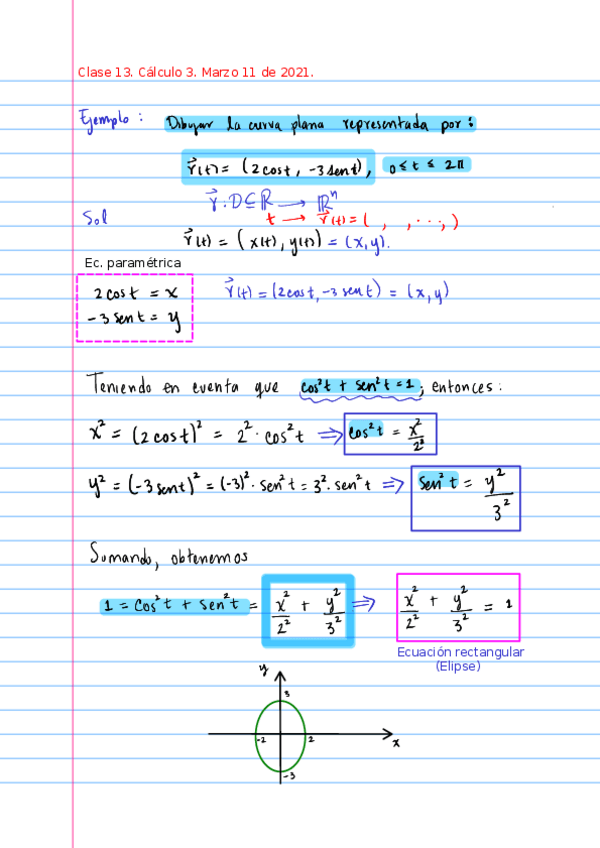 Clase 13. Cálculo 3. Marzo 11 de 2021.
Ejemplo: Dibujar la curva plana representada por:
r⃗(t) = (2cost, -3sent), 0 ≤ t ≤ 2π
r⃗: D⊆ℝ → ℝⁿ
Sol t → r⃗(t) = ( , , ..., )
r⃗(t) = (x(t), y(t)) = (x,y).
Ec. paramétrica
2cost = x r⃗(t) = (2cost, -3sent) = (x,y)
-3sent = y
Teniendo en cuenta que cos²t + sen²t = 1, entonces:
x² = (2cost)² = 2² · cos²t ⇒ cos²t = x²/2²
y² = (-3sent)² = (-3)² · sen²t = 3² · sen²t ⇒ sen²t = y²/3²
Sumando, obtenemos
1 = cos²t + sen²t = x²/2² + y²/3² ⇒ x²/2² + y²/3² = 1
Ecuación rectangular
(Elipse)
y
3
-2 2 x
-3